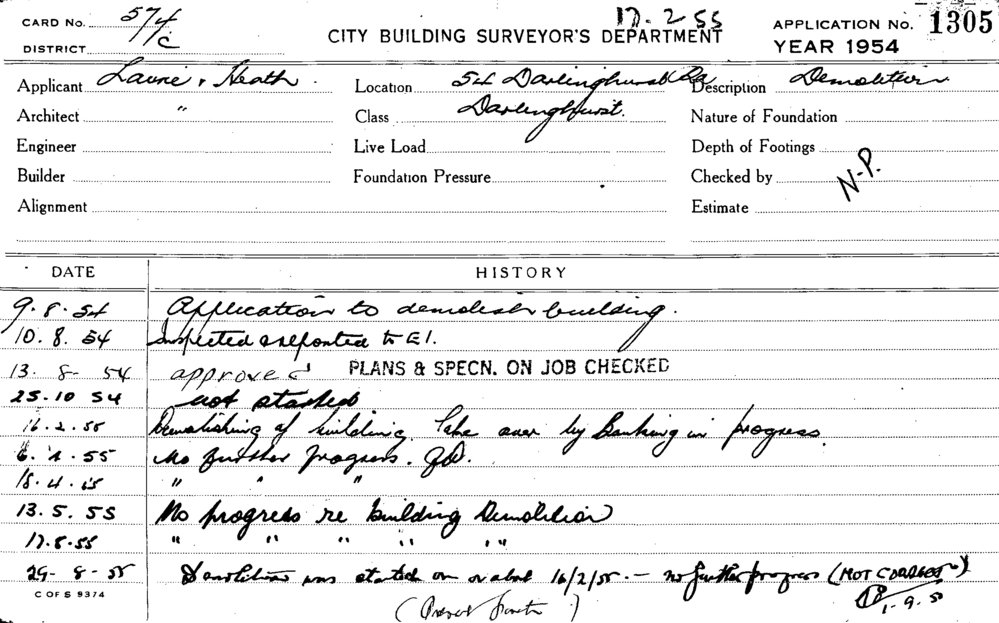 CARD NO. 574/C 17.2.55 APPLICATION NO. 1305
DISTRICT CITY BUILDING SURVEYOR'S DEPARTMENT YEAR 1954
Applicant Laurie & Heath Location 54 Darlinghurst Rd Description Demolition
Architect " Class Darlinghurst. Nature of Foundation
Engineer Live Load Depth of Footings
Builder Foundation Pressure Checked by N.P.
Alignment Estimate
DATE HISTORY
9.8.54 Application to demolish building.
10.8.54 Inspected & reported to E1.
13.8-54 approved PLANS & SPECN. ON JOB CHECKED
25.10 54 not started
16.2.55 Demolishing of building. over by in progress.
6.4.55 No further progress.
18.4.55 " " "
13.5.55 No progress re building Demolition
17.8.55 " " " " "
29-8-55 Demolition was started on or about 16/2/55. — no further progress (NOT
C OF S 9374 1-9.5